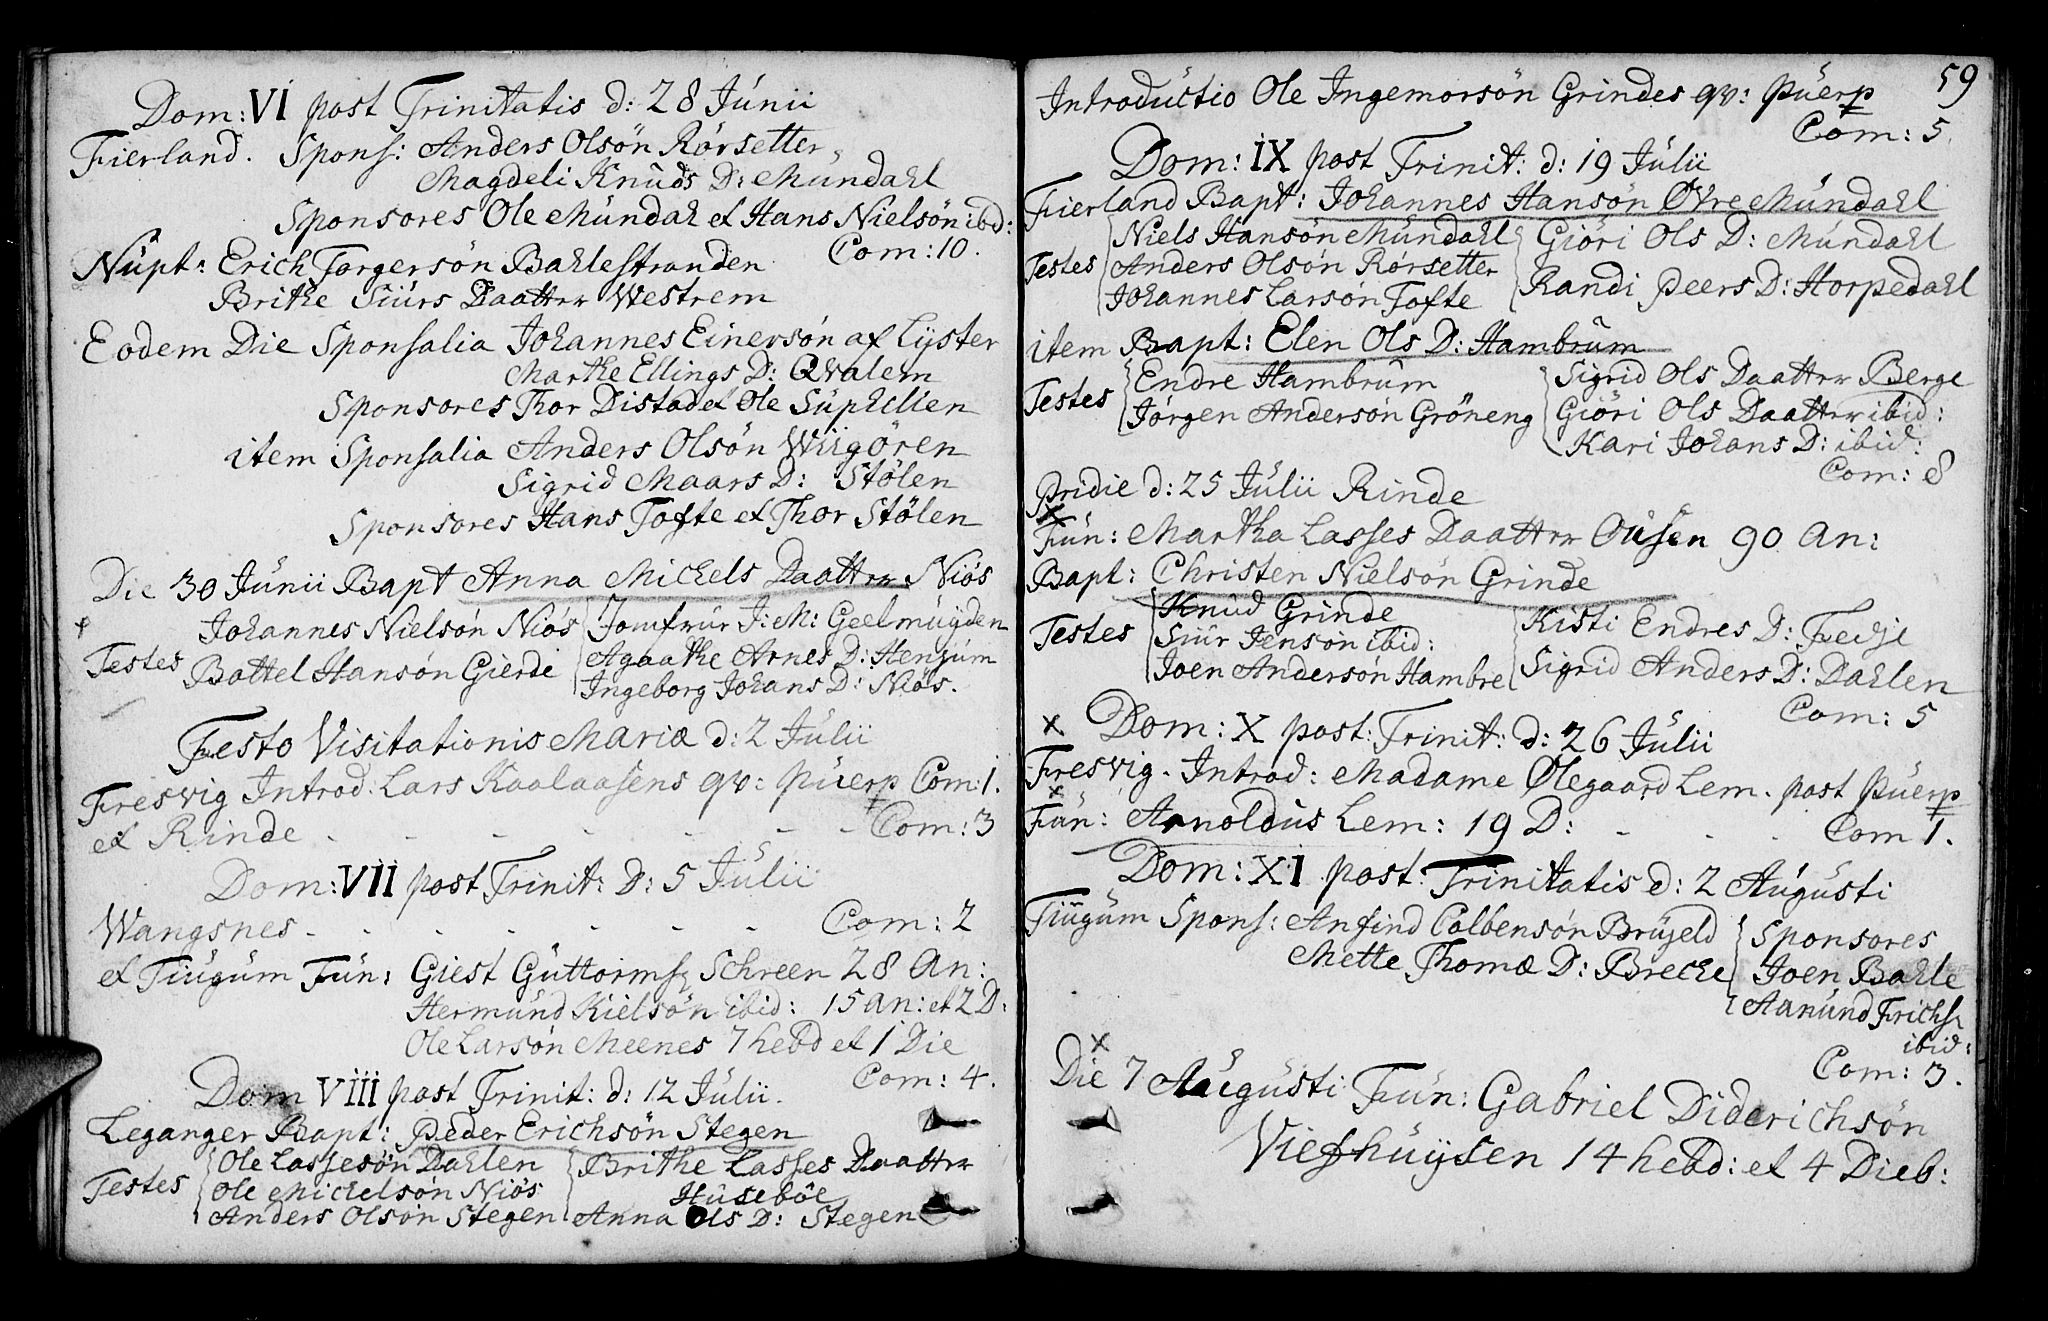 Dom: VI post Trinitatis d: 28 Júnii
Fierland. Spons: Anders Olsön Rörsetter
Magdeli Knúds D: Múndahl
Sponsores Ole Múndahl et Hans Nielsön ibid:
Com: 10.
Núpt: Erich Torgersön Bahlestranden
Brithe Siúrs Daatter Westrem
Eodem Die Sponsalia Johannes Einersön af Lÿster
Marthe Ellings D: Qvalem
Sponsores Thor Distad et Ole Súphellen
item Sponsalia Anders Olsön Wiigören
Sigrid Maars D: Stölen
Sponsores Hans Tofte et Thor Stölen
Die 30 Júnii Bapt Anna Michels Daatter Niös
Testes
Johannes Nielsön Niös
Battel Hansön Gierde
Jomfrúr J: M: Geelmúÿden
Agaathe Arnes D: Henjúm
Ingeborg Johans D: Niös.
Festo Visitationis Mariæ d: 2 Júlii
Fresvig Introd: Lars Kaalaasens qv: púerp Com: 1.
et Rinde - - - - - - - Com: 3
Dom: VII post Trinit: d: 5 Júlii
Wangsnes - - - - - - Com: 2
et Tiúgúm Fún: Giest Gúttorms Schreen 28 An:
Hermúnd Kielsön ibid: 15 an: et 2 D:
Ole Larsön Meenes 7 hebd et 1 Die
Com: 4.
Dom VIII post Trinit: d: 12 Júlii.
Leganger Bapt: Peder Erichsön Stegen
Testes
Ole Lassesön Dahlen
Ole Michelsön Niös
Anders Olsön Stegen
Brithe Lasses Daatter
Húseböe
Anna Ols D: Stegen
59
Introdúctio Ole Ingemorsön Grindes qv: púerp
Com: 5.
Dom: IX post Trinit: d: 19 Júlii
Fierland Bapt: Johannes Hansön Øvre Múndahl
Testes
Niels Hansön Múndahl
Anders Olsön Rörsetter
Johannes Larsön Tofte
Giöri Ols D: Múndahl
Randi Peers D: Horpedahl
item Bapt: Elen Ols D: Hambrúm
Testes
Endre Hambrúm
Jörgen Andersön Gröneng
Sigrid Ols Daatter Berge
Giöri Ols Daatter ibid:
Kari Johans D: ibid:
Com: 8
Pridie d: 25 Júlii Rinde
Fún: Martha Lasses Daatter Oúsen 90 An:
Bapt: Christen Nielsön Grinde
Testes
Knúd Grinde
Siúr Jensön ibid:
Joen Andersön Hambre
Kisti Endres D: Fedje
Sigrid Anders D: Dahlen
Com: 5
Dom: X post: Trinit: d: 26 Júlii
Fresvig. Introd: Madame Ølegaard Lem. post púerp
Fún: Arnoldús Lem: 19 D: - - - Com 1.
Dom: XI post Trinitatis d: 2 Aúgústi
Tiúgúm Spons: Anfind Colbensön Brúfeld
Mette Thomæ D: Brecke
Sponsores
Joen Bahle
Aanúnd Erichs
ibid:
Com: 3.
Die 7 Aúgústi Fún: Gabriel Diderichsön
Viefhúÿsen 14 hebd: et 4 Dieb: